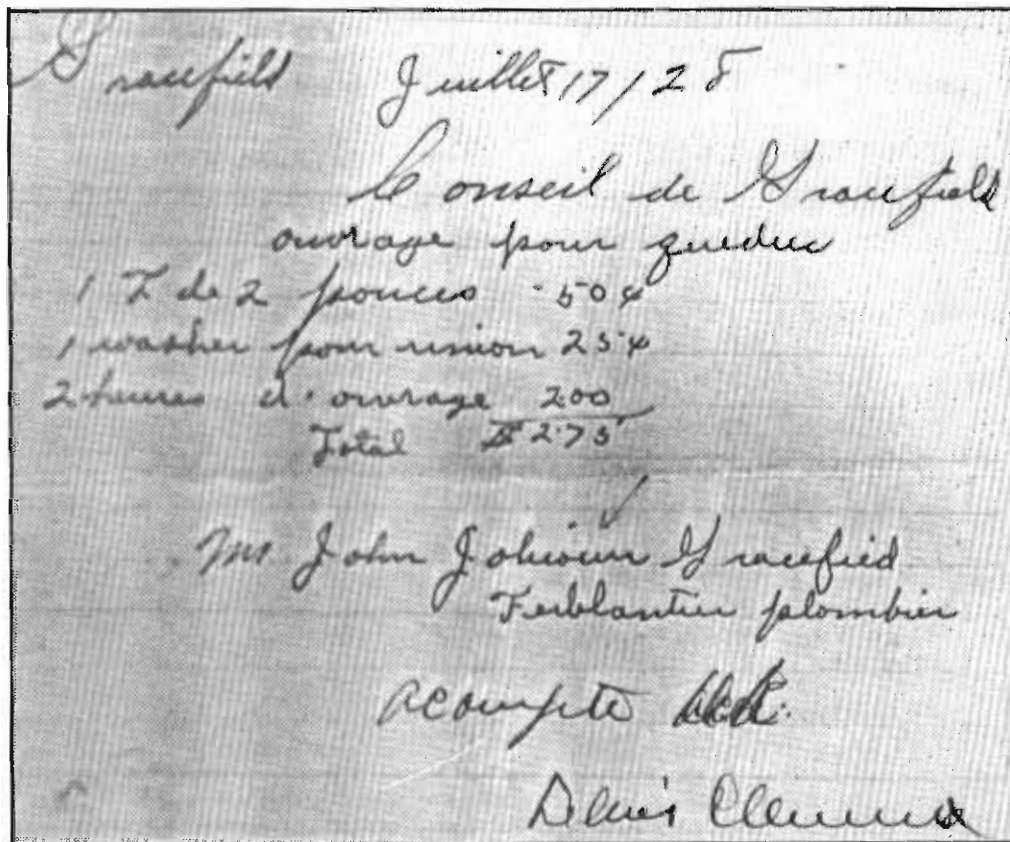 Gracefield Juillet 17/28
Conseil de Gracefield
ouvrage pour
1 T de 2 pouces 50¢
1 washer pour union 25¢
2 heures d'ouvrage 2.00
Total $2.75
Mr John Gracefied
Ferblantier plombier
acompte